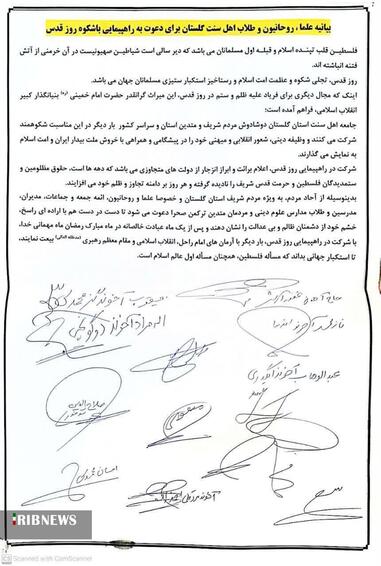 بیانیه علما، روحانیون و طلاب اهل سنت گلستان برای دعوت به راهپیمایی باشکوه روز قدس
فلسطین قلب تپنده اسلام و قبله اول مسلمانان می باشد که دیر سالی است شیاطین صهیونیست در آن خرمنی از آتش
فتنه انباشته اند.
روز قدس، تجلی شکوه و عظمت امت اسلام و رستاخیز استکبار ستیزی مسلمانان جهان می باشد.
اینک که مجال دیگری برای فریاد علیه ظلم و ستم در روز قدس، این میراث گرانقدر حضرت امام خمینی (ره) بنیانگذار کبیر
انقلاب اسلامی، فراهم آمده است؛
جامعه اهل سنت استان گلستان دوشادوش مردم شریف و متدین استان و سراسر کشور بار دیگر در این مناسبت شکوهمند
شرکت می کنند و وظیفه دینی، شعور انقلابی و میهنی خود را در پیشگامی و همراهی با خروش ملت بیدار ایران و امت اسلام
به نمایش می گذارند.
شرکت در راهپیمایی روز قدس، اعلام برائت و ابراز انزجار از دولت های متجاوزی می باشد که دهه ها است، حقوق مظلومین و
ستمدیدگان فلسطین و حرمت قدس شریف را نادیده گرفته و هر روز بر دامنه تجاوز و ظلم خود می افزایند.
بدینوسیله از آحاد مردم، به ویژه مردم شریف استان گلستان و خصوصا علما و روحانیون، ائمه جمعه و جماعات، مدیران،
مدرسین و طلاب مدارس علوم دینی و مردمان متدین ترکمن صحرا دعوت می شود تا دست در دست هم با اراده ای راسخ،
خشم خود از دشمنان ظالم و بی عدالت را نشان دهند و پس از یک ماه عبادت خالصانه در ماه مبارک رمضان ماه مهمانی خدا،
با شرکت در راهپیمایی روز قدس، بار دیگر با آرمان های امام راحل، انقلاب اسلامی و مقام معظم رهبری (مدظله العالی) بیعت نمایند،
تا استکبار جهانی بداند که مسأله فلسطین، همچنان مسأله اول عالم اسلام است.
IRIBNEWS
Scanned with CamScanner